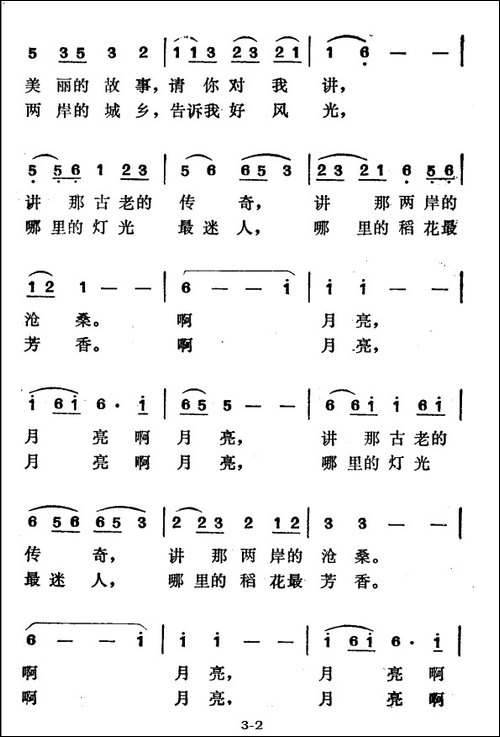 5 35 3 2 | 113 23 21 | 1 6 — — |
美丽的故事,请你对我讲,
两岸的城乡,告诉我好风光,
5 56 1 23 | 5 6 65 3 | 23 21 6 56 |
讲那古老的传奇,讲那两岸的
哪里的灯光最迷人,哪里的稻花最
12 1 — — | 6 — — i | i i — — |
沧桑。啊月亮,
芳香。啊月亮,
i 6i 6· i | 65 5 — — | 6i i 6i |
月亮啊月亮,讲那古老的
月亮啊月亮,哪里的灯光
6 56 65 3 | 2 23 2 12 | 3 3 — — |
传奇,讲那两岸的沧桑。
最迷人,哪里的稻花最芳香。
6 — — i | i i — — | i 6i 6· i |
啊月亮,月亮啊
啊月亮,月亮啊
3-2